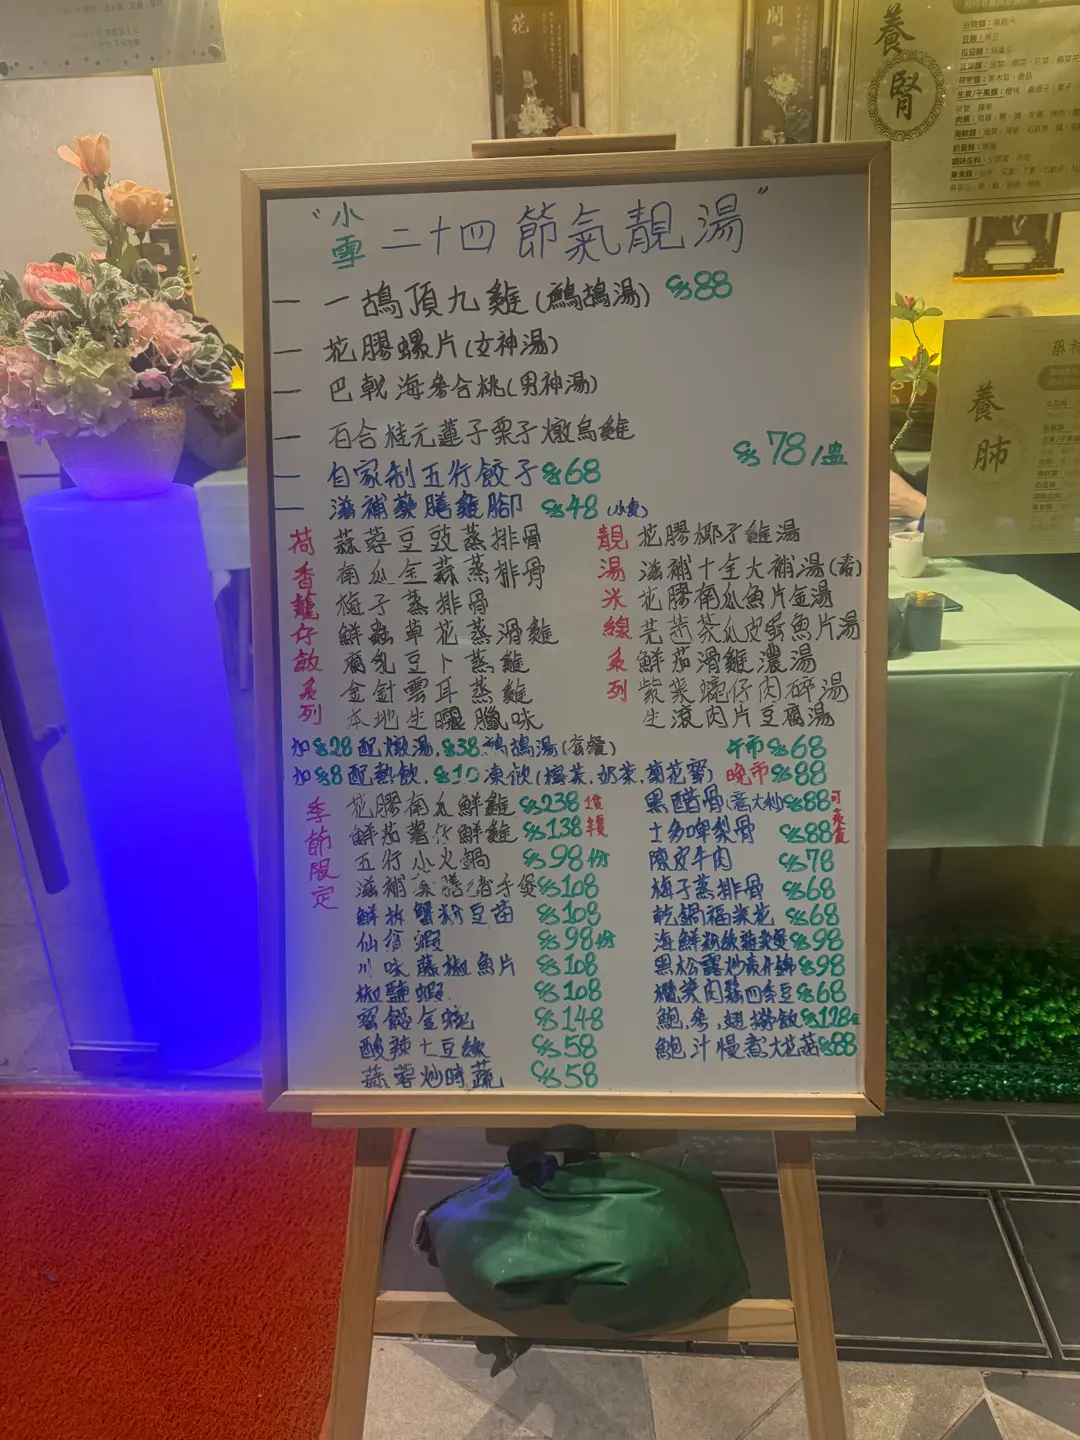 "小雪 二十四節氣靚湯"
一 一鴣頂九雞(鷓鴣湯) $88
一 花膠螺片(女神湯)
一 巴戟海參合桃(男神湯)
一 百合桂元蓮子栗子燉烏雞
$78/盅
一 自家制五行餃子 $68
一 滋補藥膳雞腳 $48(小食)
荷香籠仔飯系列
蒜蓉豆豉蒸排骨
南瓜金蒜蒸排骨
梅子蒸排骨
鮮蟲草花蒸滑雞
腐乳豆卜蒸雞
金針雲耳蒸雞
本地生曬臘味
靚湯米線系列
花膠椰子雞湯
滋補十全大補湯
花膠南瓜魚片金湯
芫茜茶瓜皮蛋魚片湯
鮮茄滑雞濃湯
紫菜蠔仔肉碎湯
生滾肉片豆腐湯
加$28配燉湯,$38鷓鴣湯(套餐)
加$8配熱飲,$10凍飲
午市$68
晚市$88
季節限定
花膠南瓜鮮雞 $238
鮮茄薯仔鮮雞 $138
五行小火鍋 $98份
滋補藥膳豬手煲 $108
鮮拆蟹粉豆苗 $108
仙翁蝦 $98份
川味藤椒魚片 $108
椒鹽蝦 $108
蜜餞金蠔 $148
酸辣土豆絲 $58
蒜蓉炒時蔬 $58
黑醋骨(意大利) $88
士多啤梨骨 $88
陳皮牛肉 $78
梅子蒸排骨 $68
乾鍋福菜花 $68
海鮮粉絲雜菜煲 $98
黑松露炒素什錦 $98
欖菜肉鬆四季豆 $68
鮑,參,翅撈飯 $128
鮑汁慢煮大花菇 $88
養腎
養肺